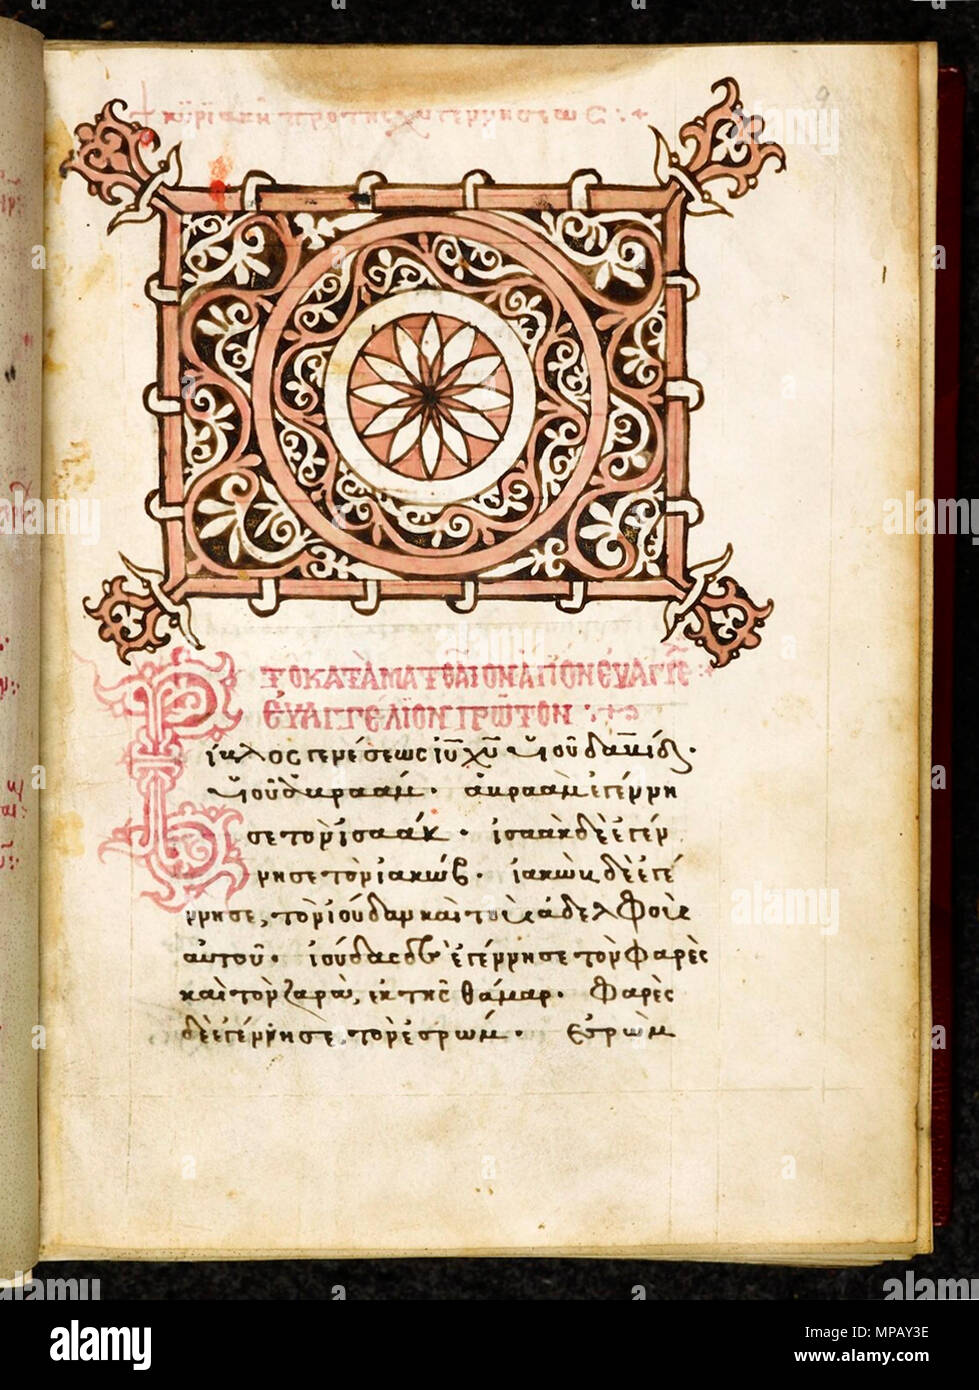 9
† κυριακη προ της χ(υ) γεννησεωσ :·+
ΤΟ ΚΑΤᾺ ΜΑΤΘΑῖΟΝ ἍΓΙΟΝ ΕΥΑΓΓΕ
ΕΥΑΓΓΕΛΙΟΝ ΠΡΩΤΟΝ
Βίβλος γενέσεως ἰῦ χῦ υἱοῦ δαυίδ·
υἱοῦ ἀβραάμ· ἀβραὰμ ἐγέννη
σε τὸν ἰσαάκ· ἰσαὰκ δὲ ἐγέν
νησε τὸν ἰακώβ· ἰακὼβ δὲ ἐγέ
ννησε, τὸν ἰούδαν καὶ τοὺς ἀδελφοὺς
αὐτοῦ· ἰούδας δὲ ἐγέννησε τὸν φαρὲς
καὶ τὸν ζαρὰ, ἐκ τῆς θάμαρ· φαρὲς
δὲ ἐγέννησε, τὸν ἐσρώμ· ἐσρὼμ
alamy
Image ID: MPAY3E
www.alamy.com